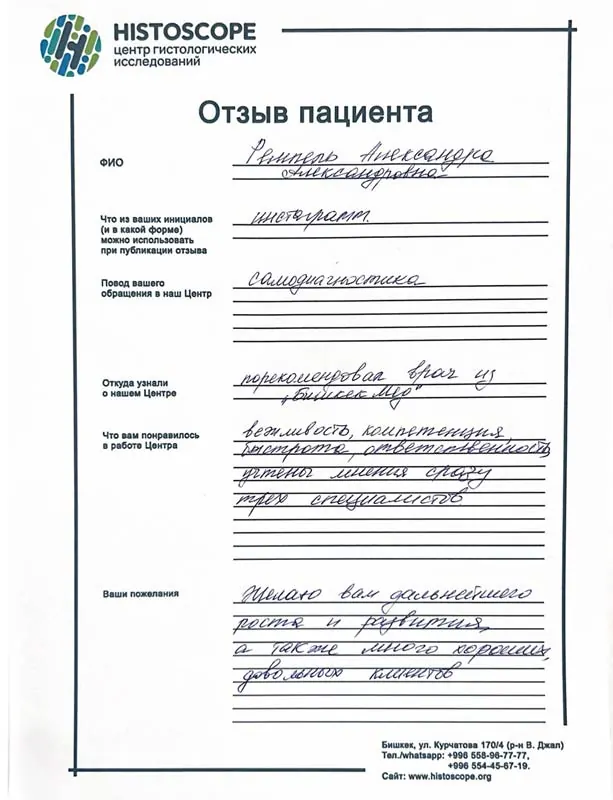 HISTOSCOPE
центр гистологических
исследований
Отзыв пациента
ФИО
Ремпель Александра
Александровна
Что из ваших инициалов
(и в какой форме)
можно использовать
при публикации отзыва
инстаграмм.
Повод вашего
обращения в наш Центр
самодиагностика
Откуда узнали
о нашем Центре
порекомендовал врач из
„Бишкек Мед"
Что вам понравилось
в работе Центра
вежливость, компетенция,
быстрота, ответственность,
учтены мнения сразу
трех специалистов
Ваши пожелания
Желаю вам дальнейшего
роста и развития,
а также много хороших,
довольных клиентов
Бишкек, ул. Курчатова 170/4 (р-н В. Джал)
Тел./whatsapp: +996 558-96-77-77,
+996 554-45-67-19.
Сайт: www.histoscope.org